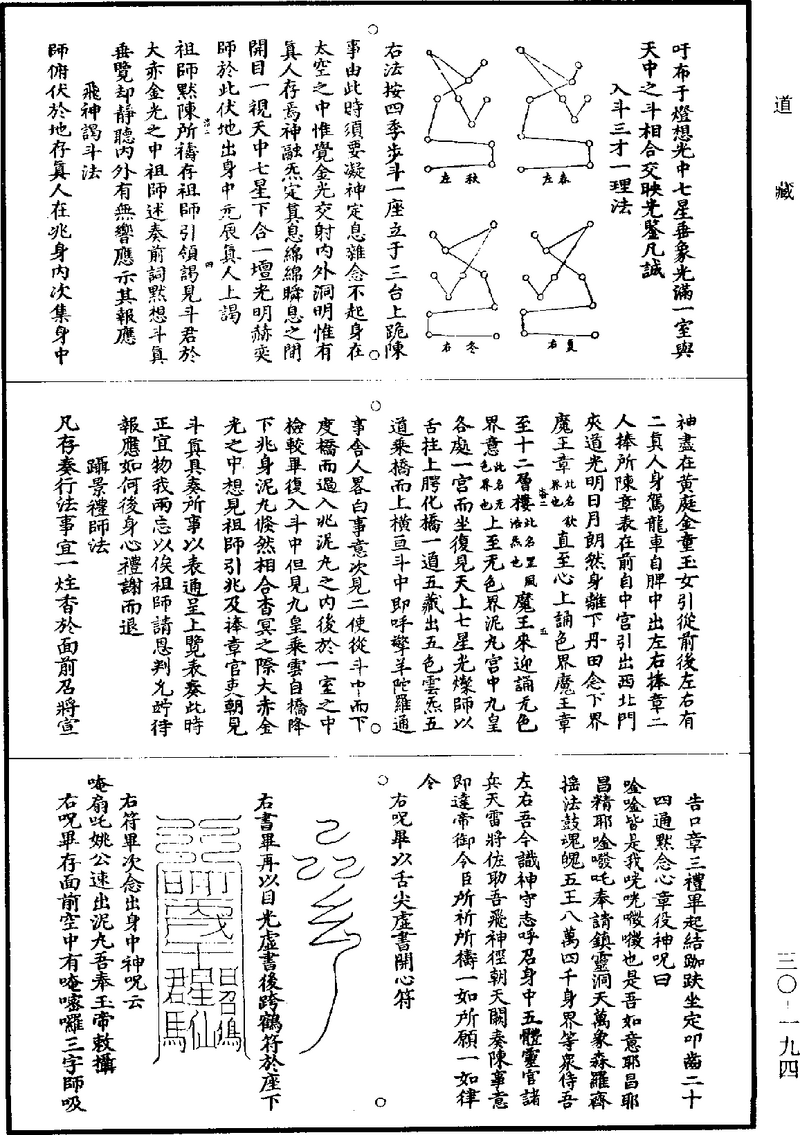 道藏
三〇-一九四
吁布于燈想光中七星垂象光滿一室與
天中之斗相合交映光鑒凡誠
入斗三才一理法
春左
秋左
夏右
冬右
右法按四季步斗一座立于三台上跪陳
事由此時須要凝神定息雜念不起身在
太空之中惟覺金光交射內外洞明惟有
真人存焉神融炁定其息綿綿瞬息之間
開目一視天中七星下合一壇光明赫奕
師於此伏地出身中元辰真人上謁
祖師默陳所禱存祖師引領謁見斗君於
大赤金光之中祖師述奏前詞默想斗真
垂覽却靜聽內外有無響應示其報應
飛神謁斗法
師俯伏於地存真人在兆身內次集身中
神盡在黃庭金童玉女引從前後左右有
二真人身駕龍車自脾中出左右捧章二
人捧所陳章表在前自中宮引出西北門
夾道光明日月朗然身離下丹田念下界
魔王章此名欲界也直至心上誦色界魔王章
至十二層樓此名罡風浩炁也魔王來迎誦无色
界意此名无色界也上至无色界泥丸宮中九皇
各處一宮而坐復見天上七星光燦師以
舌拄上腭化橋一道五藏出五色雲炁五
道乘橋而上橫亘斗中即呼擎羊陀羅通
事舍人畧白事意次見二使從斗中而下
度橋而過入兆泥丸之內後於一室之中
檢較畢復入斗中但見九皇乘雲自橋降
下兆身泥丸倏然相合杳冥之際大赤金
光之中想見祖師引兆及捧章官吏朝見
斗真具奏所事以表通呈上覽表奏此時
正宜物我兩忘以俟祖師請恩判允時待
報應如何後身心禮謝而退
躡景禮師法
凡存奏行法事宜一炷香於面前召將宣
告口章三禮畢起結跏趺坐定叩齒二十
四通默念心章役神呪曰
唫唫皆是我咣咣也是吾如意耶昌耶
昌精耶唫吒奉請鎮靈洞天萬象森羅齊
搖法鼓魂魄五王八萬四千身界等衆侍吾
左右吾今識神守志呼召身中五體靈官諸
兵天雷將佐助吾飛神徑朝天闕奏陳事意
即達帝御令臣所祈所禱一如所願一如律
令
右呪畢以舌尖虛書開心符
右書畢再以目光虛書後跨鶴符於座下
右符畢次念出身中神呪云
唵扇吒姚公速出泥丸吾奉玉帝敕攝
右呪畢存面前空中有唵嚂囉三字師吸